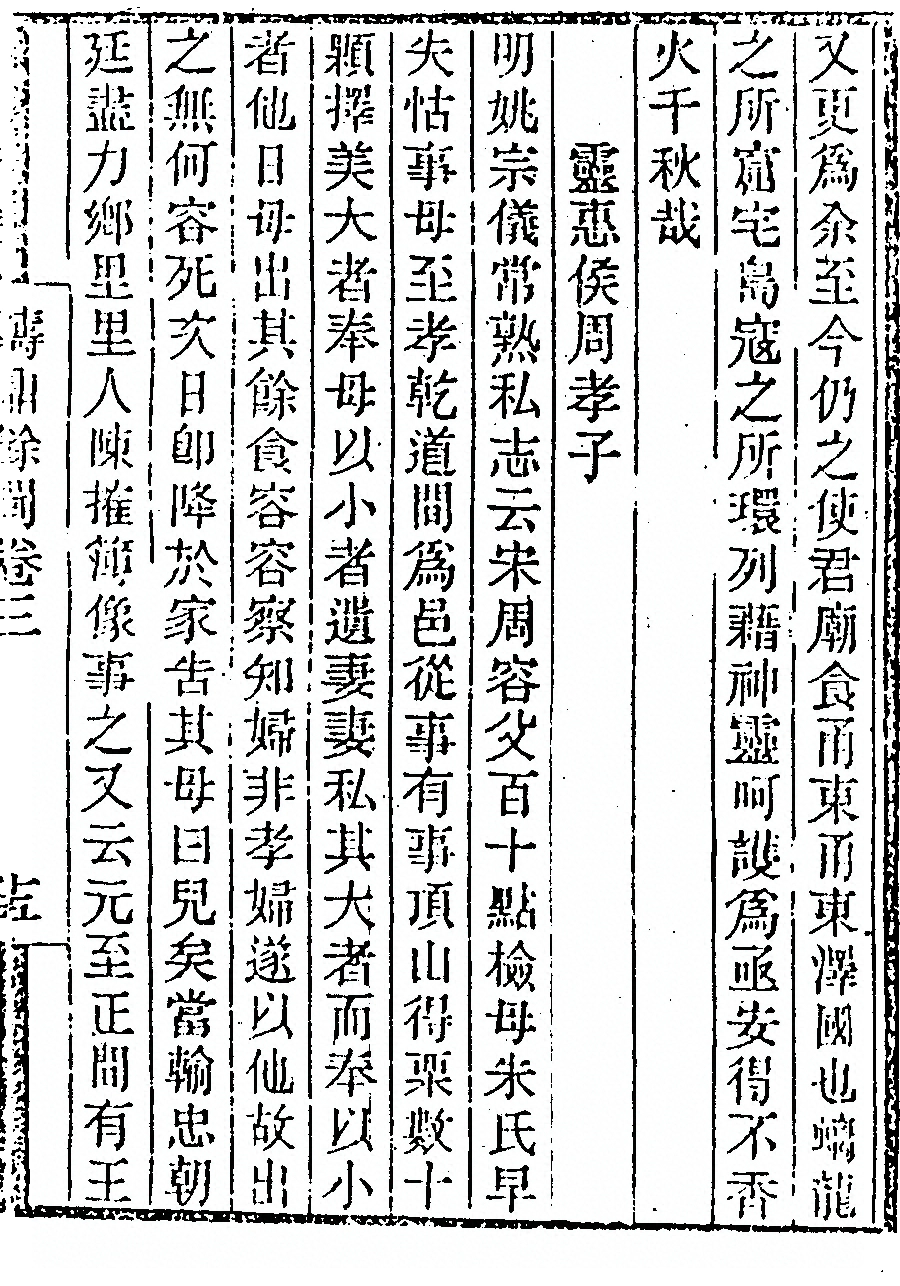 又更爲余至今仍之使君廟食甬東甬東澤國也螭龍
之所窟宅島寇之所環列藉神靈呵護爲亟安得不香
火千秋哉
靈惠侯周孝子
明姚宗儀常熟私志云宋周容父百十點檢母朱氏早
失怙事母至孝乾道間爲邑從事有事頂山得栗數十
顆擇美大者奉母以小者遺妻妻私其大者而奉以小
者他日母出其餘食容容察知婦非孝婦遂以他故出
之無何容死次日卽降於家告其母曰兒矣當翰忠朝
廷盡力鄉里里人陳摧簿像事之又云元至正間有王
餘聞卷三